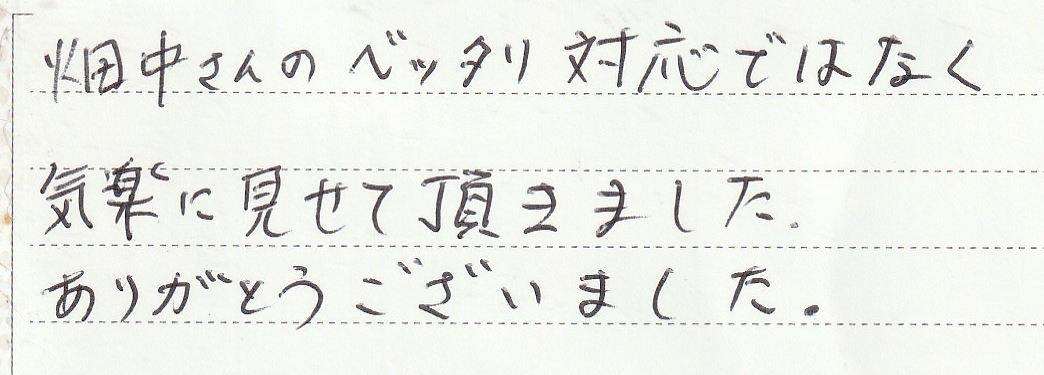 畑中さんのベッタリ対応ではなく
気楽に見せて頂きました.
ありがとうございました。